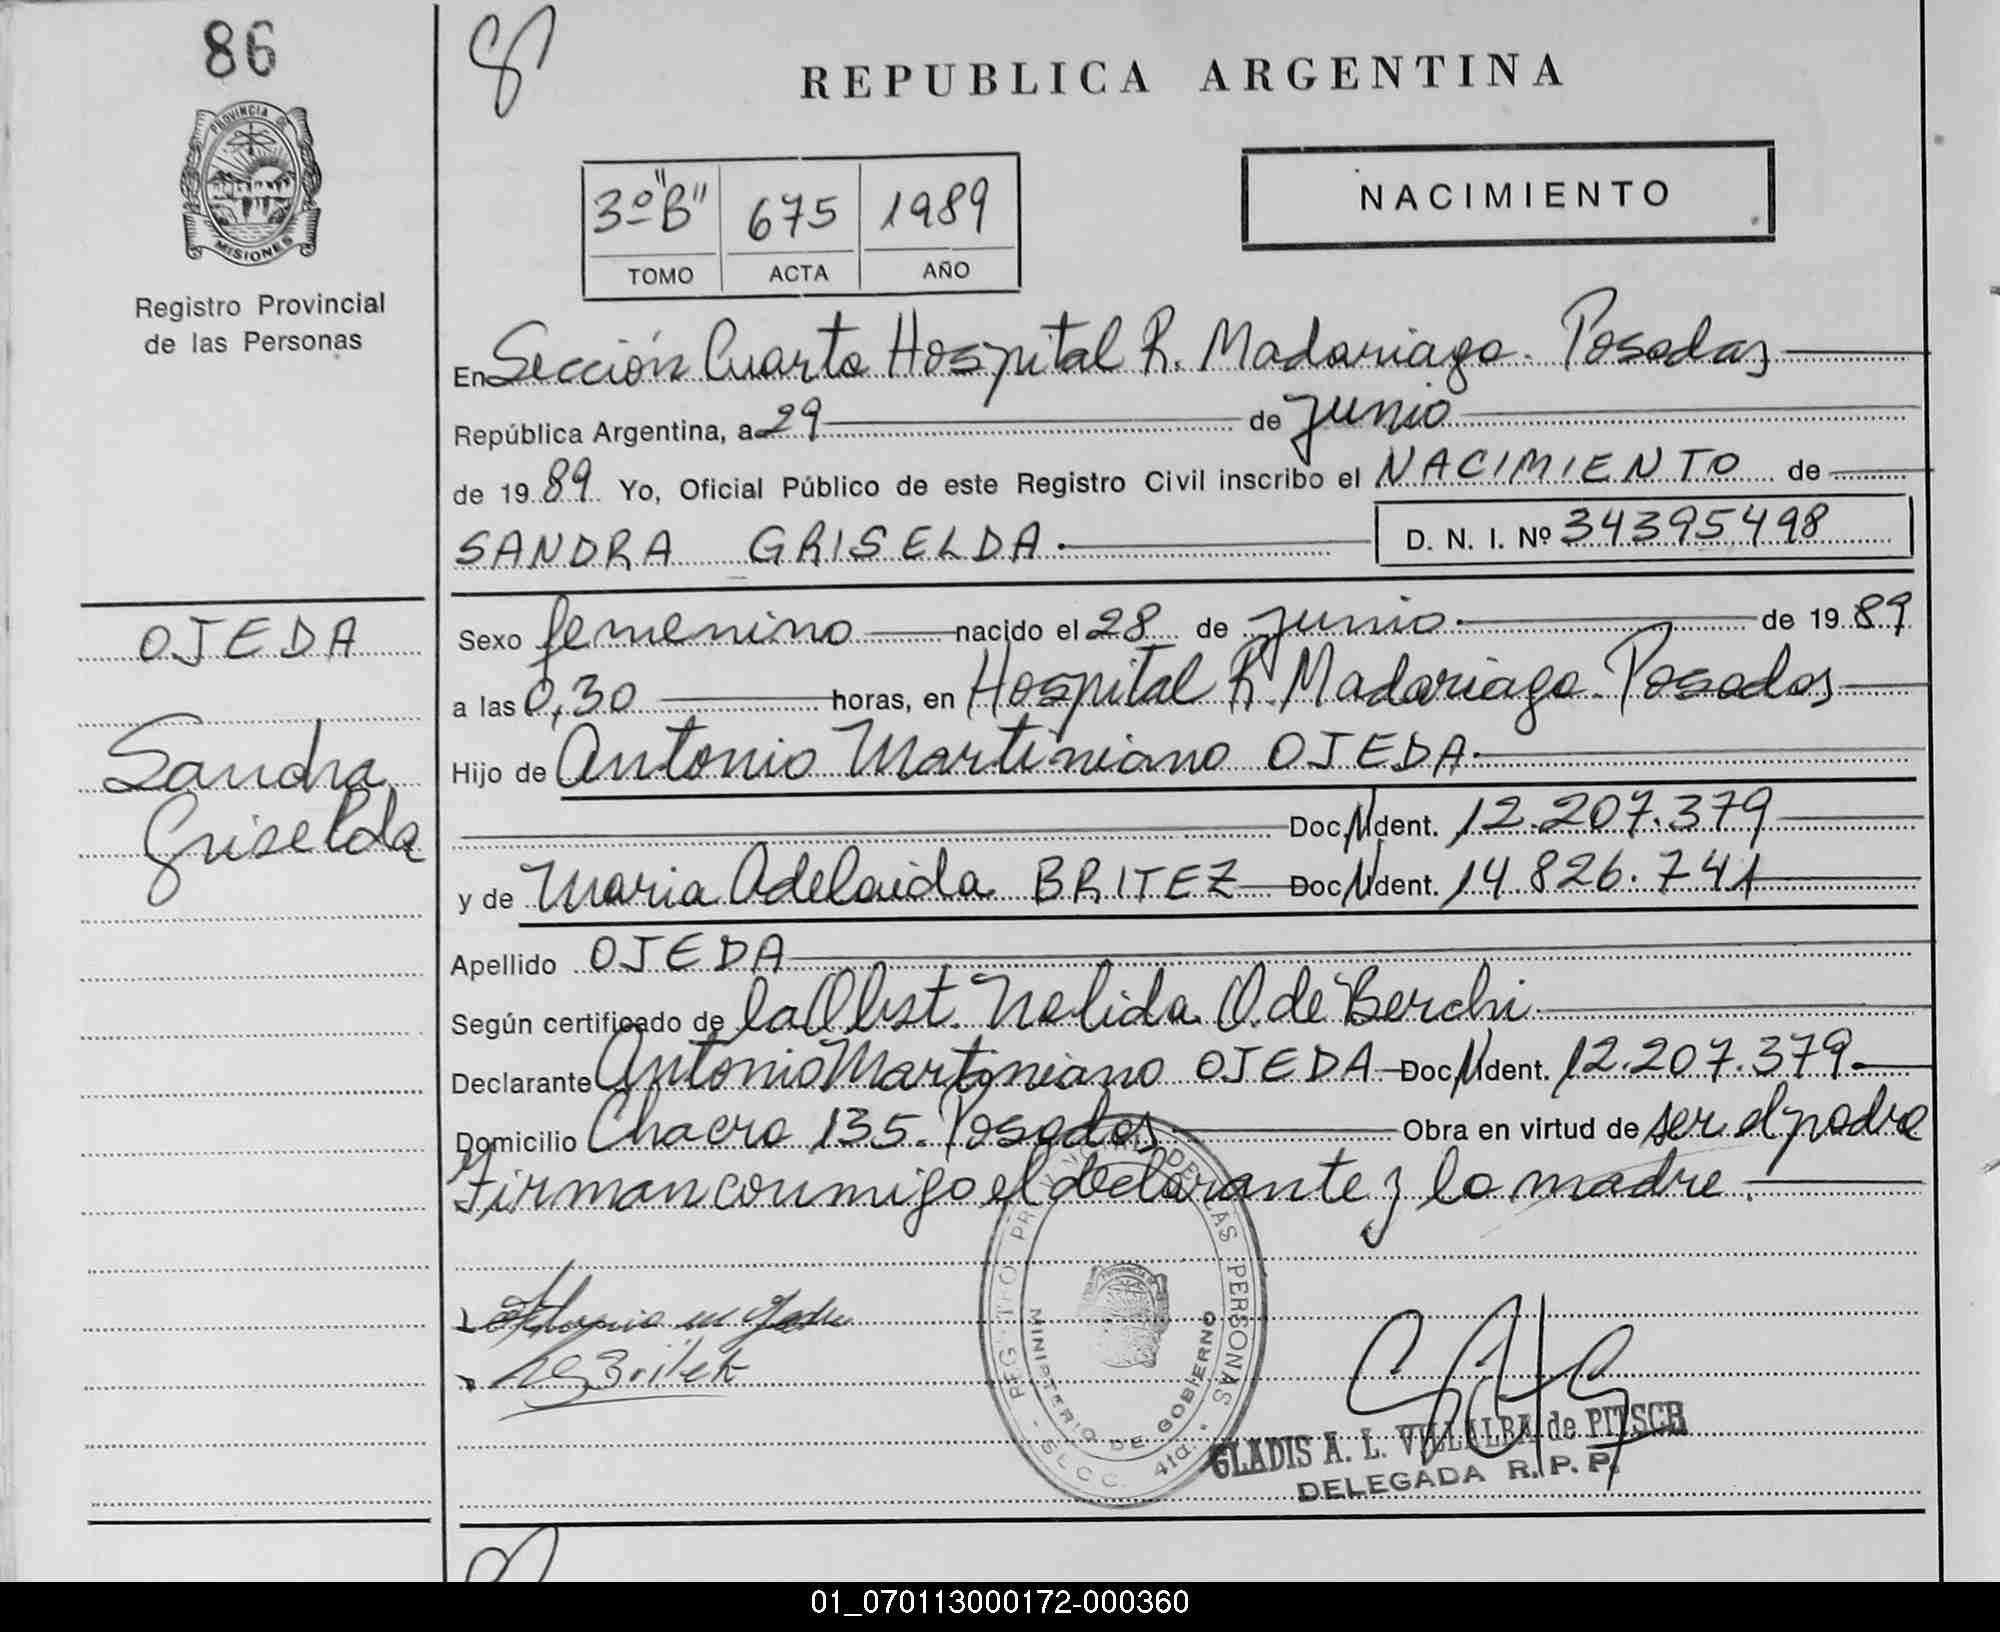 86
REPUBLICA ARGENTINA
PROVINCIA DE
MISIONES
Registro Provincial
de las Personas
3º "B" 675 1989
TOMO ACTA AÑO
NACIMIENTO
En Sección Cuarta Hospital R. Madariaga. Posadas
República Argentina, a 29 de junio
de 1989 Yo, Oficial Público de este Registro Civil inscribo el NACIMIENTO de
SANDRA GRISELDA. D. N. I. Nº 34395498
OJEDA
Sandra
Griselda
Sexo femenino nacido el 28 de junio. de 1989
a las 0,30 horas, en Hospital R. Madariaga. Posadas
Hijo de Antonio Martiniano OJEDA.
Doc. Ident. 12.207.379
y de Maria Adelaida BRITEZ Doc. Ident. 14.826.741
Apellido OJEDA
Según certificado de la Obst. Nelida O. de Berchi.
Declarante Antonio Martiniano OJEDA Doc. Ident. 12.207.379.
Domicilio Chacra 135. Posadas Obra en virtud de ser el padre
Firman conmigo el declarante y la madre.
REGISTRO PROVINCIAL DE LAS PERSONAS
MINISTERIO DE GOBIERNO
Britez
GLADIS A. L. VILLALBA de PITSCH
DELEGADA R. P. P.
01_070113000172-000360